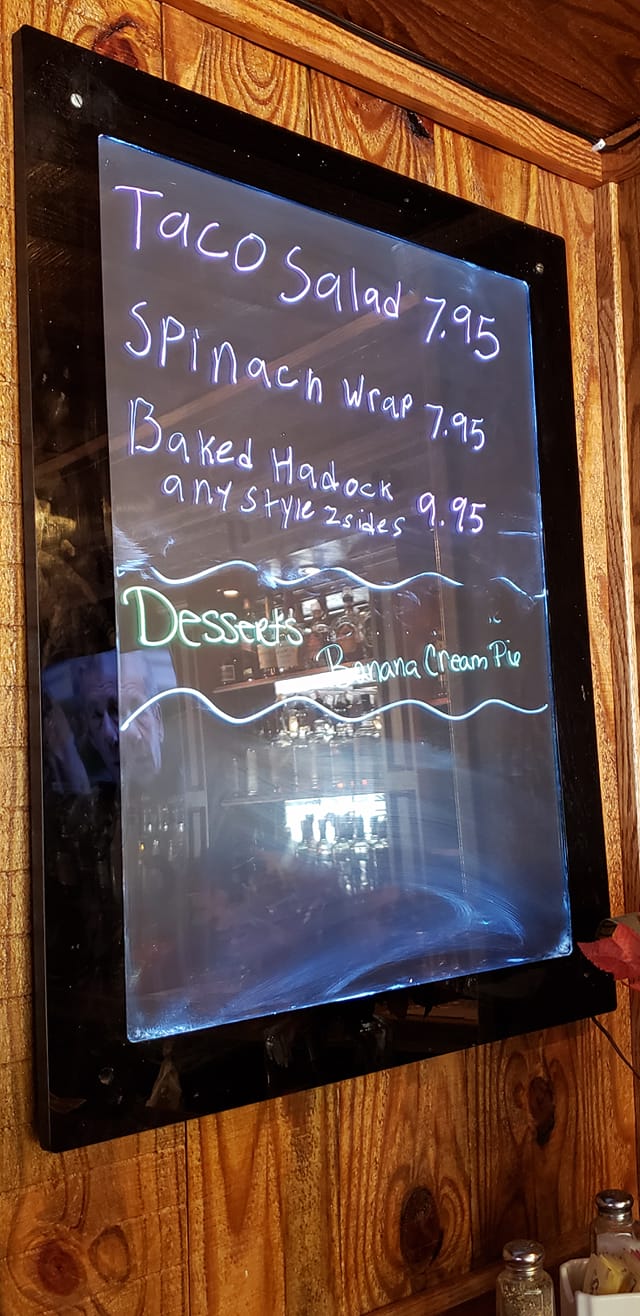 Taco Salad 7.95
Spinach Wrap 7.95
Baked Hadock
any style 2 sides 9.95
Desserts
Banana Cream Pie